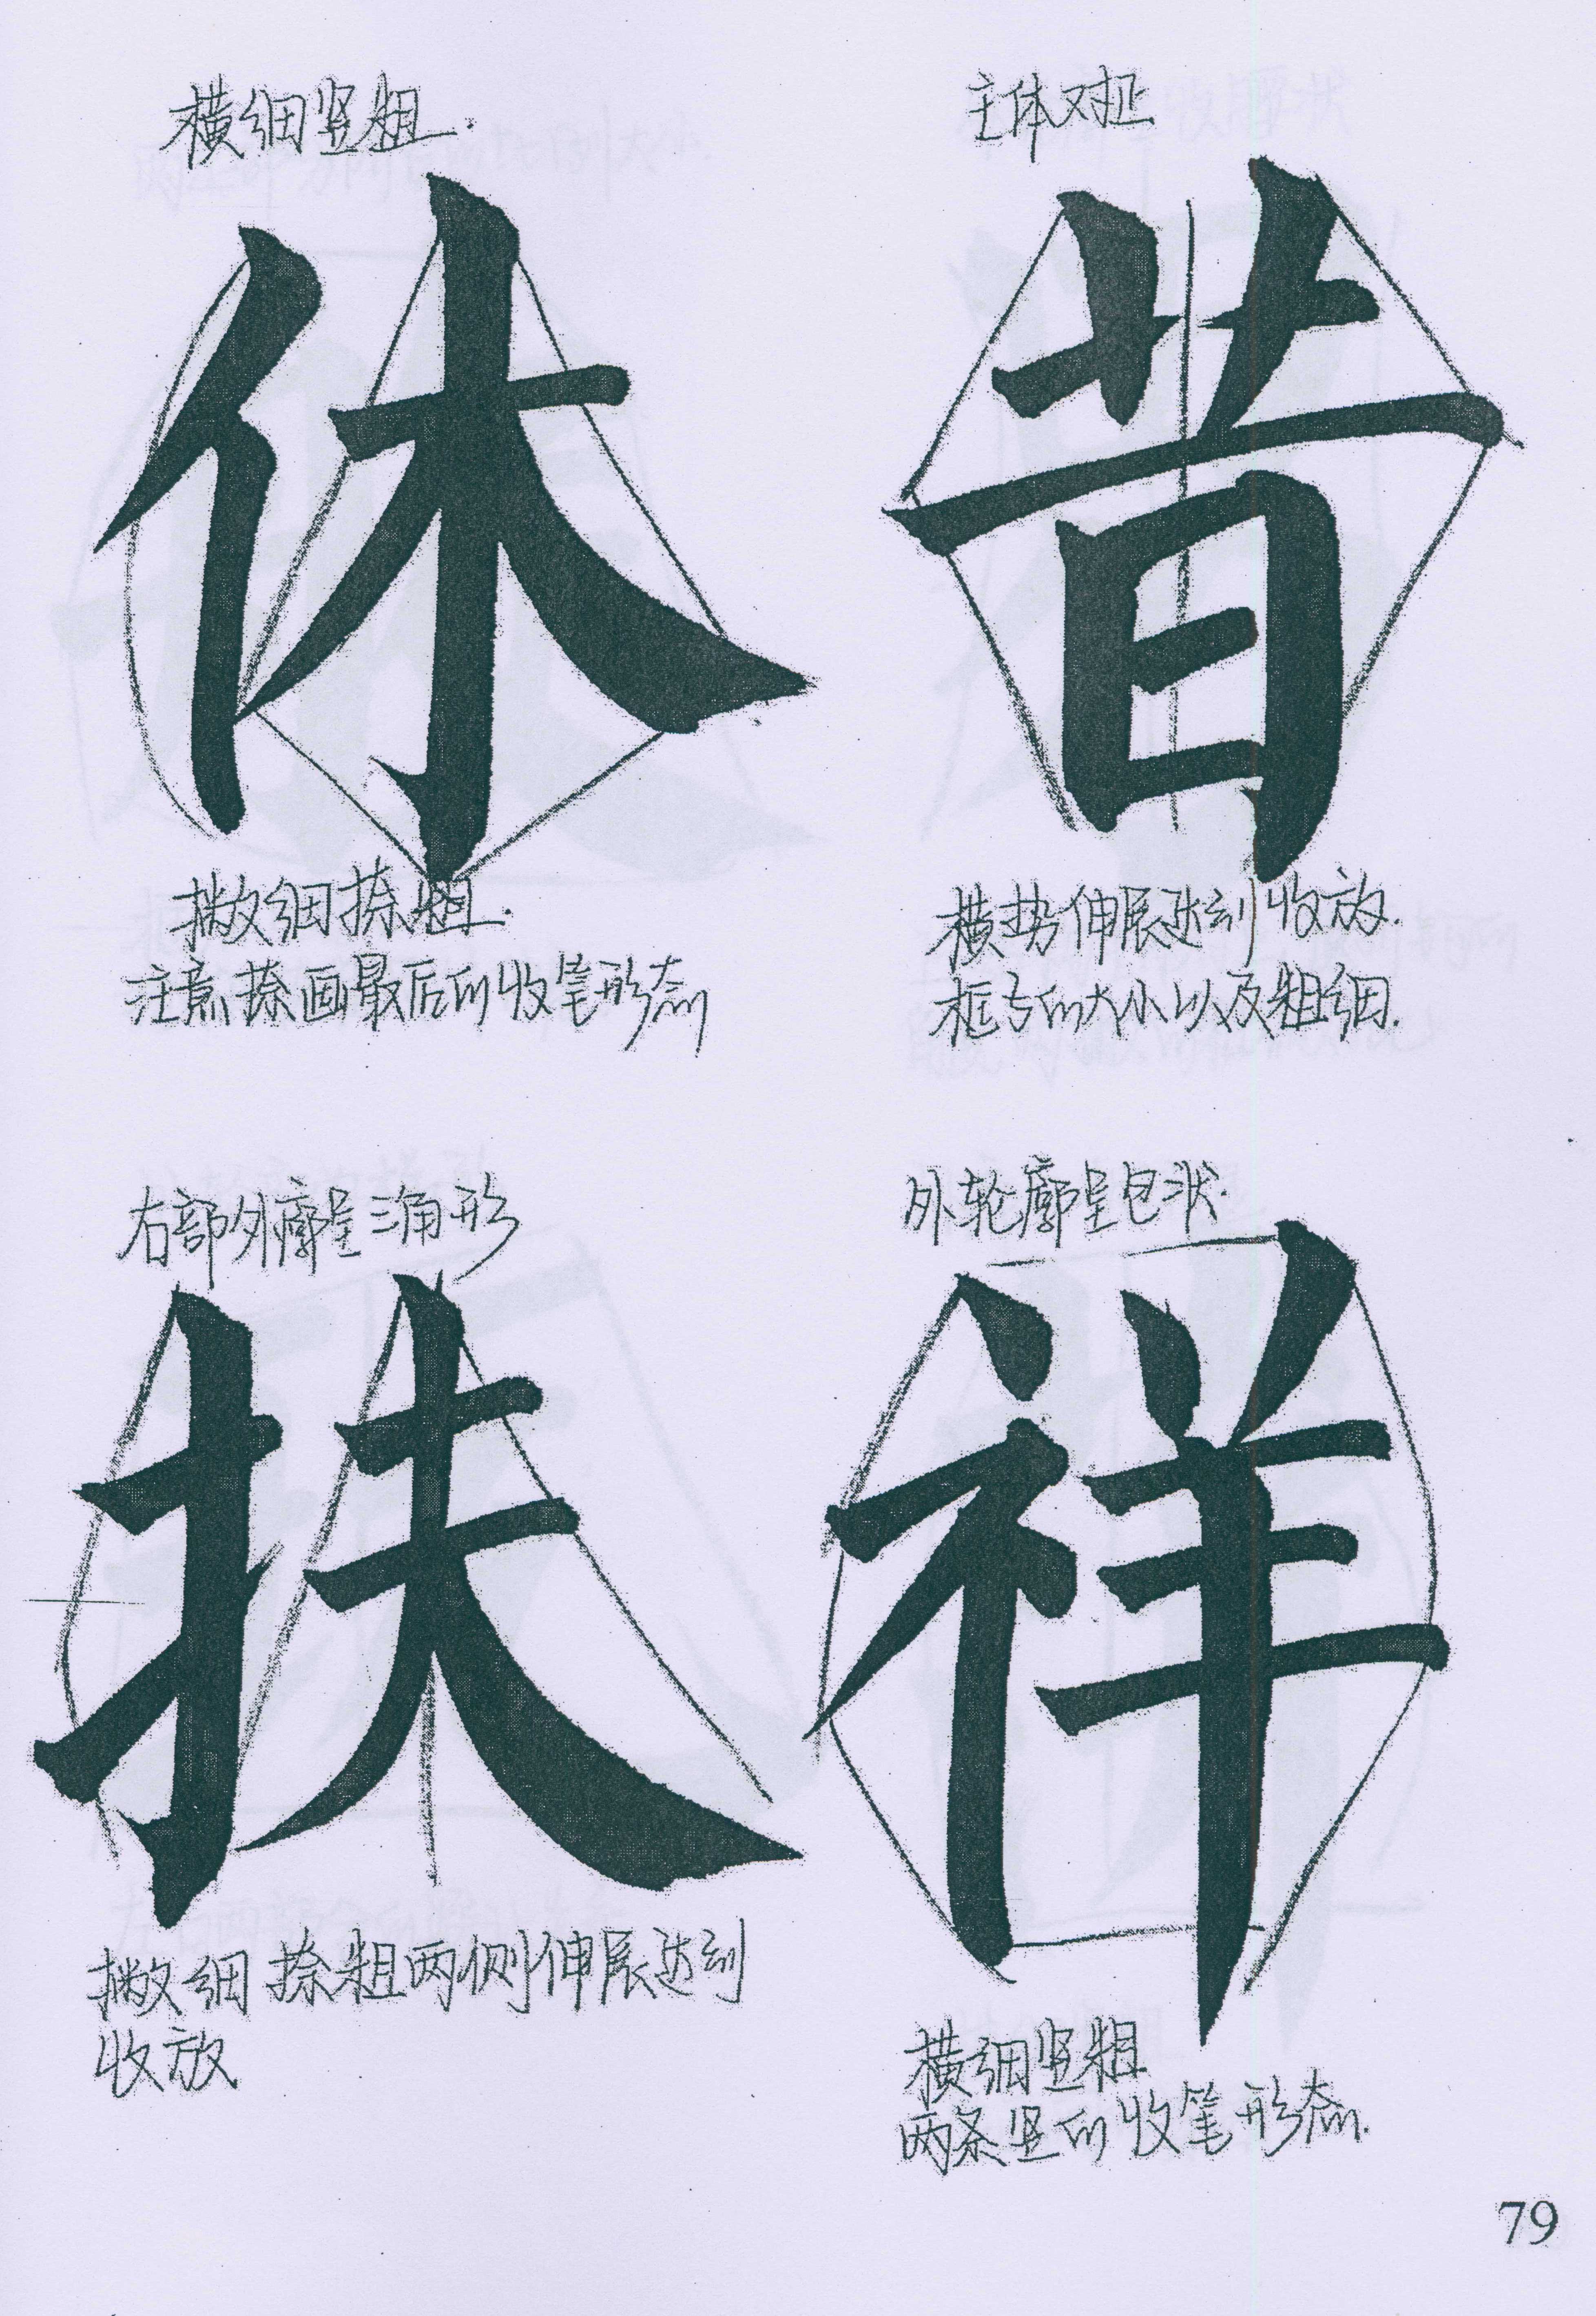 横细竖粗.
休
撇细捺粗.
注意捺画最后的收笔形态
主体对正
昔
横势伸展达到收放.
框与的大小以及粗细.
右部外廓呈三角形
扶
撇细捺粗两侧伸展达到
收放
外轮廓呈包状.
祥
横细竖粗
两条竖的收笔形态.
79